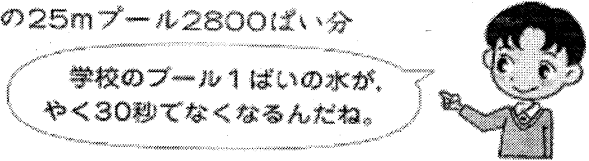 の25mプール2800ぱい分
学校のプール1ぱいの水が,
やく30秒でなくなるんだね。